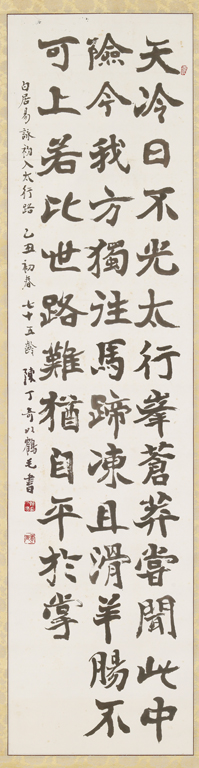 天冷日不光太行峯蒼莽嘗聞此中
險今我方獨往馬蹄凍且滑羊腸不
可上若比世路難猶自平於掌
白居易詠初入太行路 乙丑初春 七十五歲 陳丁奇以鶴毛書